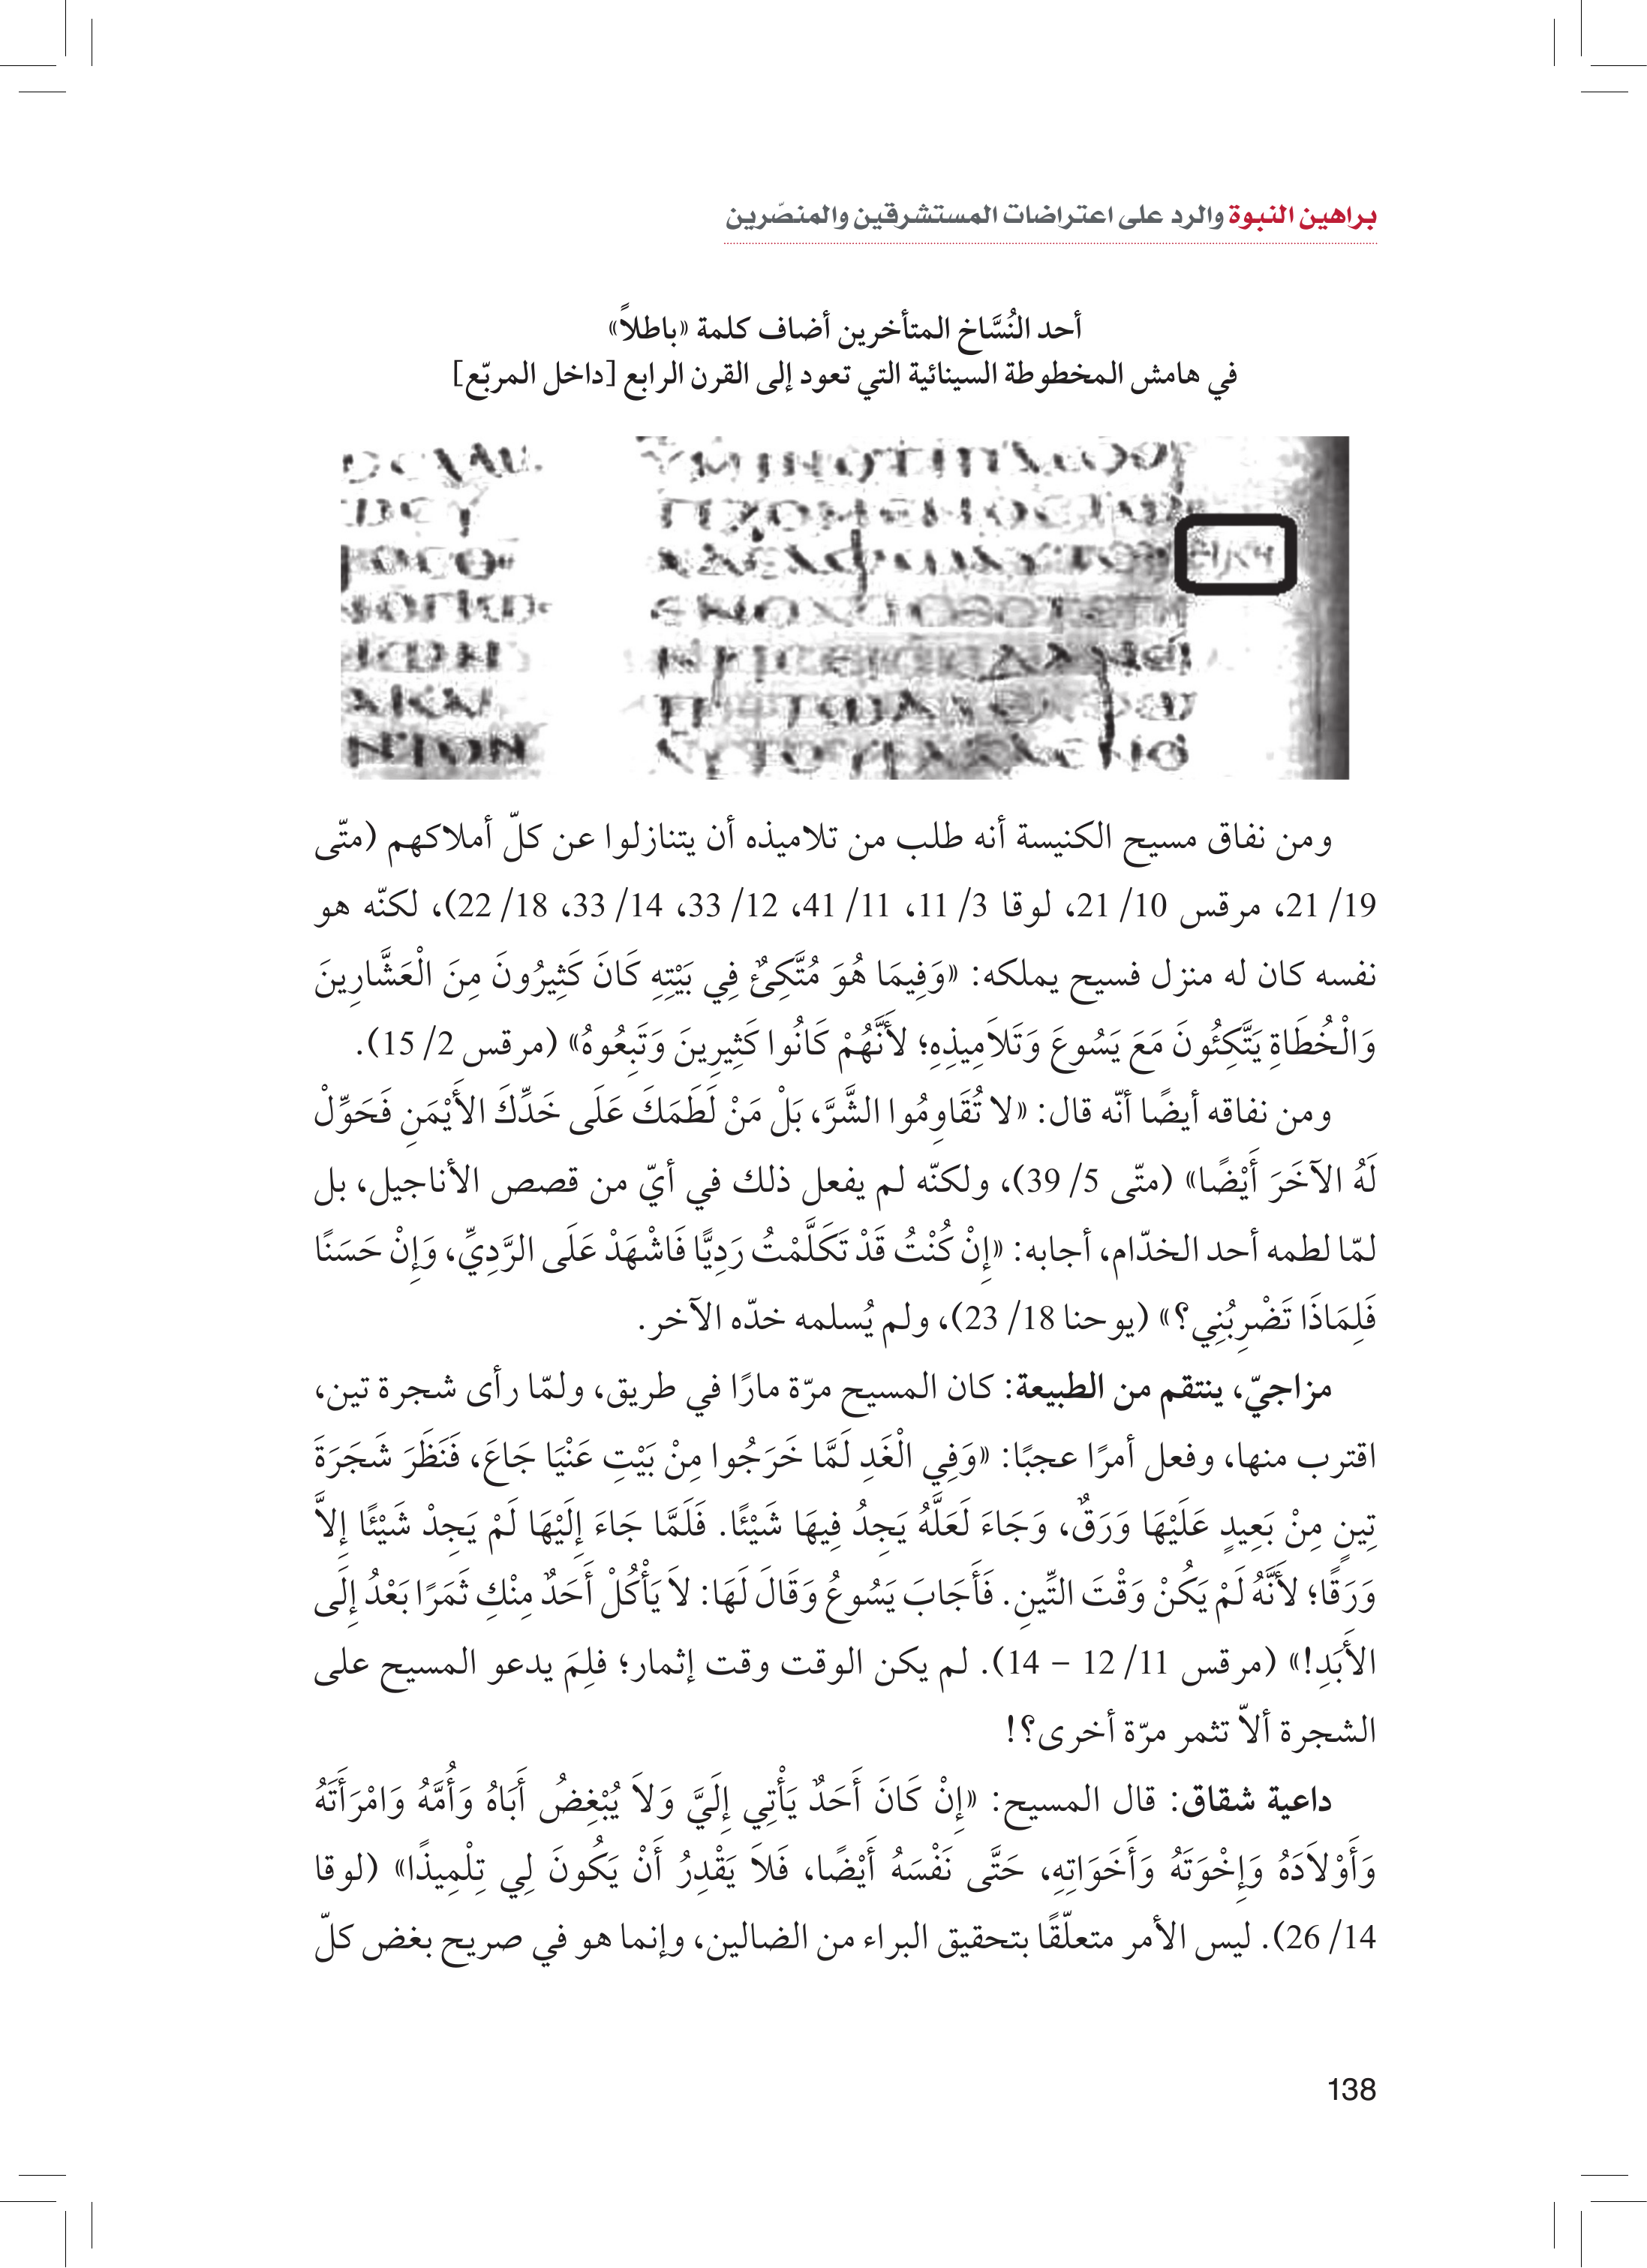 براهين النبوة والرد على اعتراضات المستشرقين والمنصّرين
أحد النُسَّاخ المتأخرين أضاف كلمة «باطلاً»
في هامش المخطوطة السينائية التي تعود إلى القرن الرابع [داخل المربّع]
ومن نفاق مسيح الكنيسة أنه طلب من تلاميذه أن يتنازلوا عن كلّ أملاكهم (متّى
19/ 21، مرقس 10/ 21، لوقا 3/ 11، 11/ 41، 12/ 33، 14/ 33، 18/ 22)، لكنّه هو
نفسه كان له منزل فسيح يملكه: «وَفِيمَا هُوَ مُتَّكِئٌ فِي بَيْتِهِ كَانَ كَثِيرُونَ مِنَ الْعَشَّارِينَ
وَالْخُطَاةِ يَتَّكِئُونَ مَعَ يَسُوعَ وَتَلاَمِيذِهِ؛ لأَنَّهُمْ كَانُوا كَثِيرِينَ وَتَبِعُوهُ» (مرقس 2/ 15).
ومن نفاقه أيضًا أنّه قال: «لا تُقَاوِمُوا الشَّرَّ، بَلْ مَنْ لَطَمَكَ عَلَى خَدِّكَ الأَيْمَنِ فَحَوِّلْ
لَهُ الآخَرَ أَيْضًا» (متّى 5/ 39)، ولكنّه لم يفعل ذلك في أيّ من قصص الأناجيل، بل
لمّا لطمه أحد الخدّام، أجابه: «إِنْ كُنْتُ قَدْ تَكَلَّمْتُ رَدِيًّا فَاشْهَدْ عَلَى الرَّدِيِّ، وَإِنْ حَسَنًا
فَلِمَاذَا تَضْرِبُنِي؟» (يوحنا 18/ 23)، ولم يُسلمه خدّه الآخر.
مزاجيّ، ينتقم من الطبيعة: كان المسيح مرّة مارًا في طريق، ولمّا رأى شجرة تين،
اقترب منها، وفعل أمرًا عجبًا: «وَفِي الْغَدِ لَمَّا خَرَجُوا مِنْ بَيْتِ عَنْيَا جَاعَ، فَنَظَرَ شَجَرَةَ
تِينٍ مِنْ بَعِيدٍ عَلَيْهَا وَرَقٌ، وَجَاءَ لَعَلَّهُ يَجِدُ فِيهَا شَيْئًا. فَلَمَّا جَاءَ إِلَيْهَا لَمْ يَجِدْ شَيْئًا إِلاَّ
وَرَقًا؛ لأَنَّهُ لَمْ يَكُنْ وَقْتَ التِّينِ. فَأَجَابَ يَسُوعُ وَقَالَ لَهَا: لاَ يَأْكُلْ أَحَدٌ مِنْكِ ثَمَرًا بَعْدُ إِلَى
الأَبَدِ!» (مرقس 11/ 12 – 14). لم يكن الوقت وقت إثمار؛ فلِمَ يدعو المسيح على
الشجرة ألاّ تثمر مرّة أخرى؟!
داعية شقاق: قال المسيح: «إِنْ كَانَ أَحَدٌ يَأْتِي إِلَيَّ وَلاَ يُبْغِضُ أَبَاهُ وَأُمَّهُ وَامْرَأَتَهُ
وَأَوْلاَدَهُ وَإِخْوَتَهُ وَأَخَوَاتِهِ، حَتَّى نَفْسَهُ أَيْضًا، فَلاَ يَقْدِرُ أَنْ يَكُونَ لِي تِلْمِيذًا» (لوقا
14/ 26). ليس الأمر متعلّقًا بتحقيق البراء من الضالين، وإنما هو في صريح بغض كلّ
138